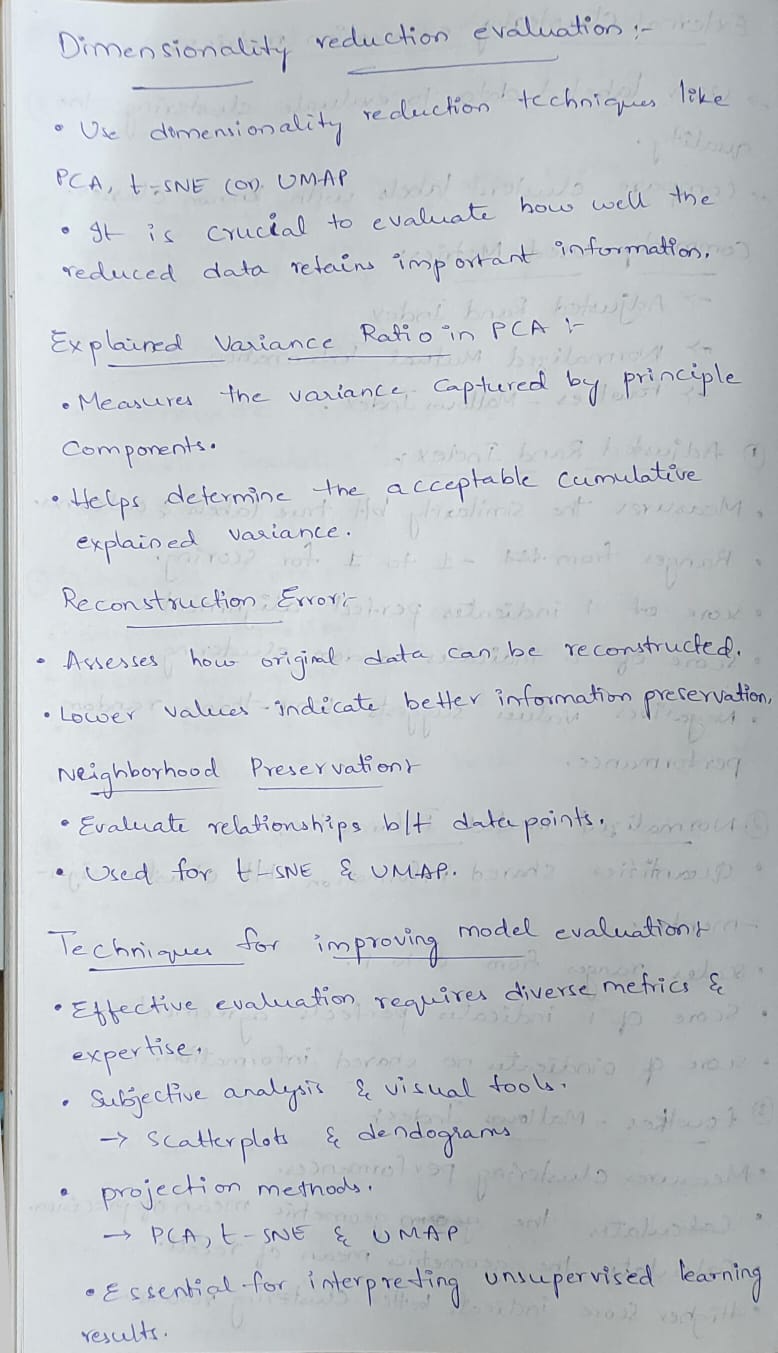 Dimensionality reduction evaluation :-
• Use dimensionality reduction techniques like
PCA, t-SNE (or) UMAP
• It is crucial to evaluate how well the
reduced data retains important information.
Explained Variance Ratio in PCA :-
• Measures the variance captured by principle
Components.
• Helps determine the acceptable cumulative
explained variance.
Reconstruction Error:-
• Assesses how original data can be reconstructed.
• Lower values indicate better information preservation,
Neighborhood Preservation:-
• Evaluate relationships b/t data points.
• Used for t-SNE & UMAP.
Techniques for improving model evaluation:-
• Effective evaluation requires diverse metrics &
expertise.
• Subjective analysis & visual tools.
→ Scatterplots & dendograms
• projection methods.
→ PCA, t-SNE & UMAP
• Essential for interpreting unsupervised learning
results.